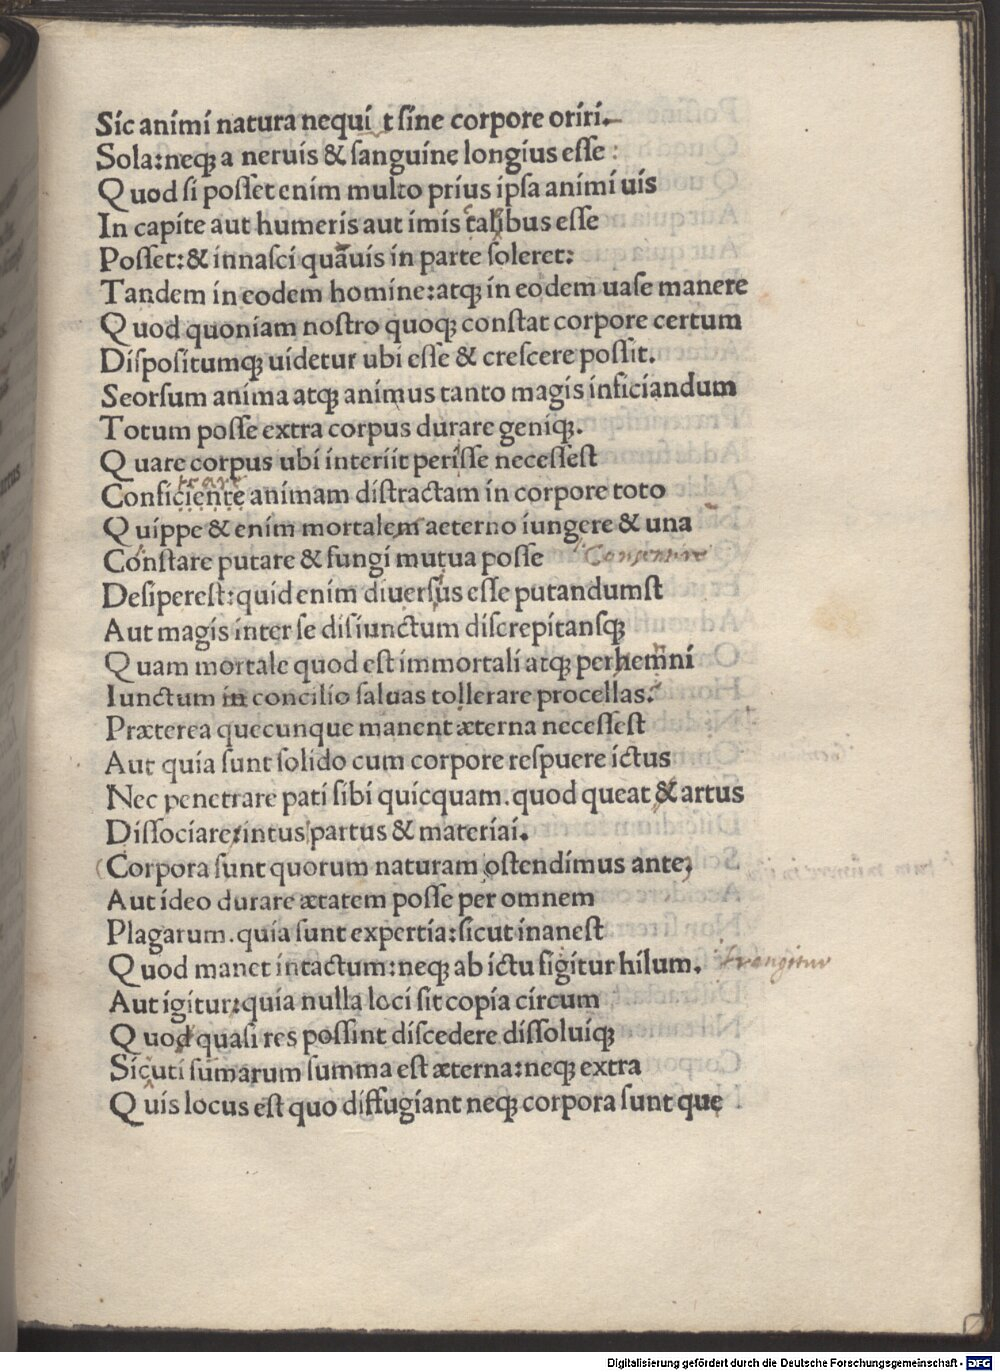 Sic animi natura nequi t sine corpore oriri.
Sola:neqꝫ a neruis & sanguine longius esse :
Quod si posset enim multo prius ipsa animi uis
In capite aut humeris aut imis talibus esse
Posset:& innasci quãuis in parte soleret:
Tandem in eodem homine:atqꝫ in eodem uase manere
Quod quoniam nostro quoqꝫ constat corpore certum
Dispositumqꝫ uidetur ubi esse & crescere possit.
Seorsum anima atqꝫ animus tanto magis inficiandum
Totum posse extra corpus durare geniqꝫ.
Quare corpus ubi interiit perisse necessest
Conficiente animam distractam in corpore toto
Quippe & enim mortalem aeterno iungere & una
Constare putare & fungi mutua posse Consentire
Desiperest:quid enim diuersus esse putandumst
Aut magis inter se disiunctum discrepitansqꝫ
Quam mortale quod est immortali atqꝫ perhemni
Iunctum in concilio saluas tollerare procellas.
Præterea quecunque manent æterna necessest
Aut quia sunt solido cum corpore respuere ictus
Nec penetrare pati sibi quicquam.quod queat & artus
Dissociare:intus partus & materiai.
(Corpora sunt quorum naturam ostendimus ante)
Aut ideo durare ætatem posse per omnem
Plagarum.quia sunt expertia:sicut inanest
Quod manet intactum:neqꝫ ab ictu figitur hilum. frangitur
Aut igitur:quia nulla loci sit copia circum
Quod quasi res possint discedere dissoluiqꝫ
Sicuti sumarum summa est æterna:neqꝫ extra
Quis locus est quo diffugiant neqꝫ corpora sunt que
Digitalisierung gefördert durch die Deutsche Forschungsgemeinschaft - DFG